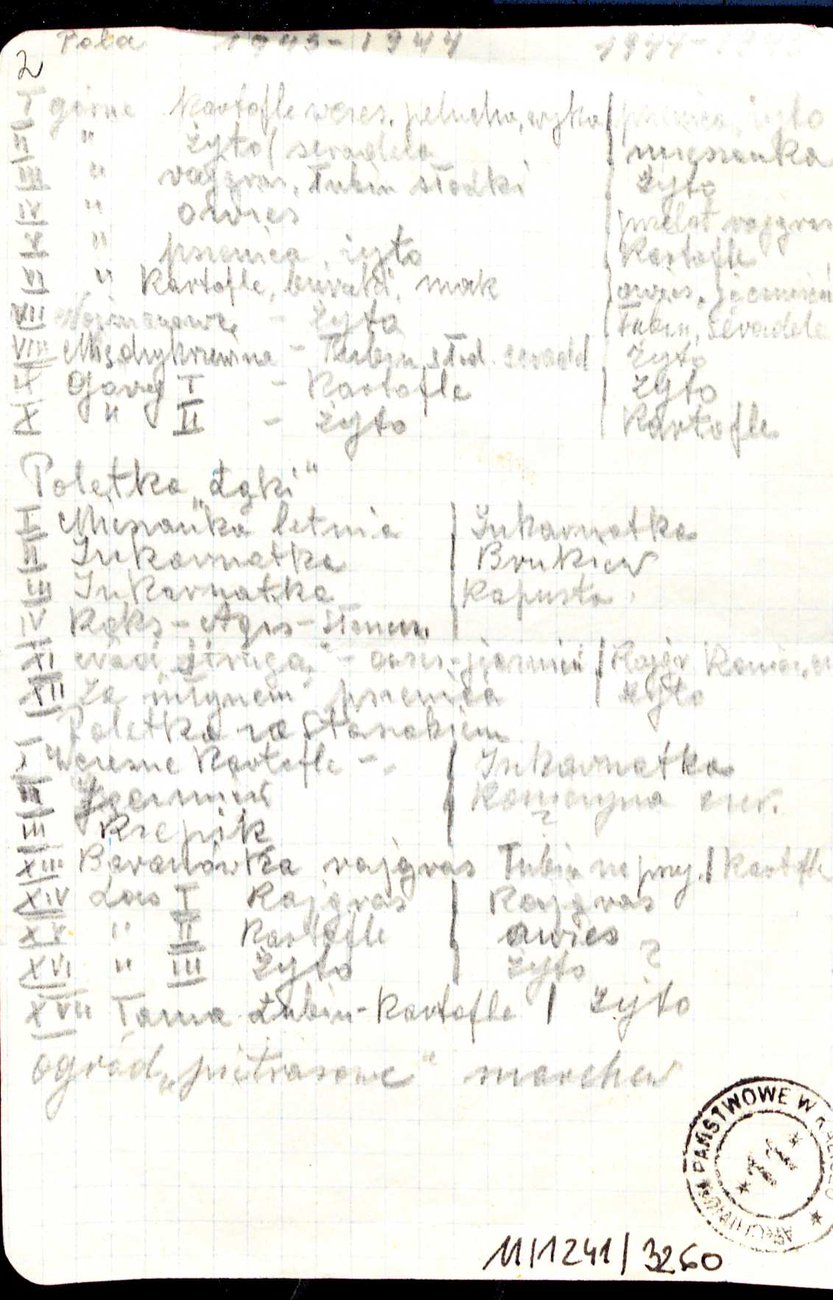 Pola 1943-1944 1944-
2
I górne Kartofle wczes. peluszka, wyka | pszenica, żyto
II " żyto/ seradela | mieszanka
III " rajgras, łubin słodki | żyto
IV " owies | przelot rajgras
V " pszenica, żyto | Kartofle
VI " Kartofle, buraki, mak | owies, jęczmień
VII - żyto | Łubin, Seradela
VIII - Łubin słod. serad | żyto
IX Góry I - Kartofle | żyto
X " II - żyto | Kartofle
Poletka „Łąki"
I Mieszanka letnia | Inkarnatka
II Inkarnatka | Brukiew
III Inkarnatka | Kapusta
IV Koks-Agis-
XI „Struga" - owies-jęczmień | Rajgr
XII Za młynem pszenica | żyto
Poletka za
I Wczesne Kartofle - | Inkarnatka
II Jęczmień | Koniczyna czer.
III Rzepik ?
XIII Baranówka rajgras Łubin | Kartofle
XIV Las I Rajgras | Rajgras
XV " II Kartofle | owies
XVI " III żyto | żyto ?
XVII Tama Łubin-Kartofle | żyto
ogród „pietrasowe" marchew
ARCHIWUM PAŃSTWOWE W
11
11/1241/3260